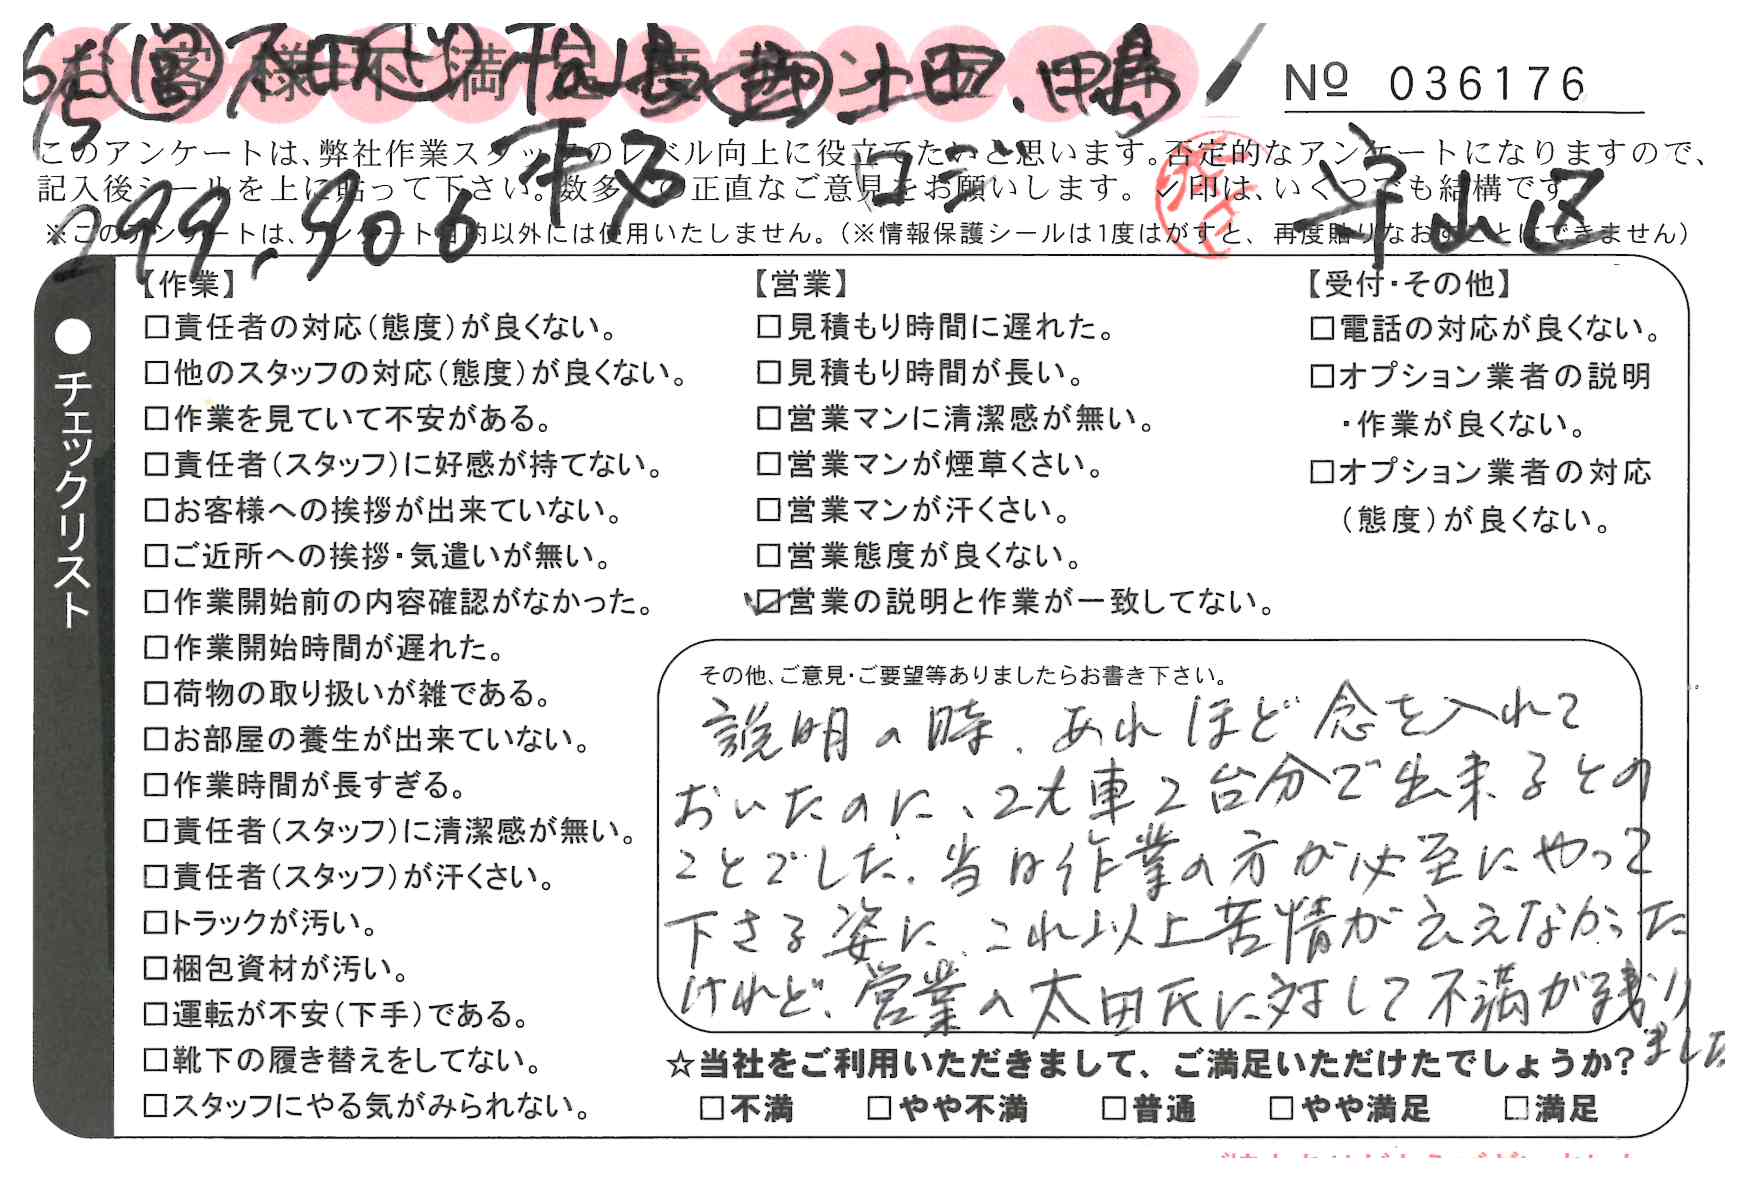 お客様不満足度アンケート
6/5 営 太田
№ 036176
このアンケートは、弊社作業スタッフのレベル向上に役立てたいと思います。否定的なアンケートになりますので、
記入後シールを上に貼って下さい。数多くの正直なご意見をお願いします。✓印は、いくつでも結構です。
※このアンケートは、アンケート目的以外には使用いたしません。（※情報保護シールは1度はがすと、再度貼りなおすことはできません）
299,906 守山区
●チェックリスト
【作業】
□責任者の対応（態度）が良くない。
□他のスタッフの対応（態度）が良くない。
□作業を見ていて不安がある。
□責任者（スタッフ）に好感が持てない。
□お客様への挨拶が出来ていない。
□ご近所への挨拶・気遣いが無い。
□作業開始前の内容確認がなかった。
□作業開始時間が遅れた。
□荷物の取り扱いが雑である。
□お部屋の養生が出来ていない。
□作業時間が長すぎる。
□責任者（スタッフ）に清潔感が無い。
□責任者（スタッフ）が汗くさい。
□トラックが汚い。
□梱包資材が汚い。
□運転が不安（下手）である。
□靴下の履き替えをしてない。
□スタッフにやる気がみられない。
【営業】
□見積もり時間に遅れた。
□見積もり時間が長い。
□営業マンに清潔感が無い。
□営業マンが煙草くさい。
□営業マンが汗くさい。
□営業態度が良くない。
☑営業の説明と作業が一致してない。
【受付・その他】
□電話の対応が良くない。
□オプション業者の説明
・作業が良くない。
□オプション業者の対応
（態度）が良くない。
その他、ご意見・ご要望等ありましたらお書き下さい。
説明の時、あれほど念を入れて
おいたのに、2t車2台分で出来るとの
ことでした。当日作業の方が必至にやって
下さる姿に、これ以上苦情が云えなかった
けれど、営業の太田氏に対して不満が残り
ました
☆当社をご利用いただきまして、ご満足いただけたでしょうか?
□不満 □やや不満 □普通 □やや満足 □満足